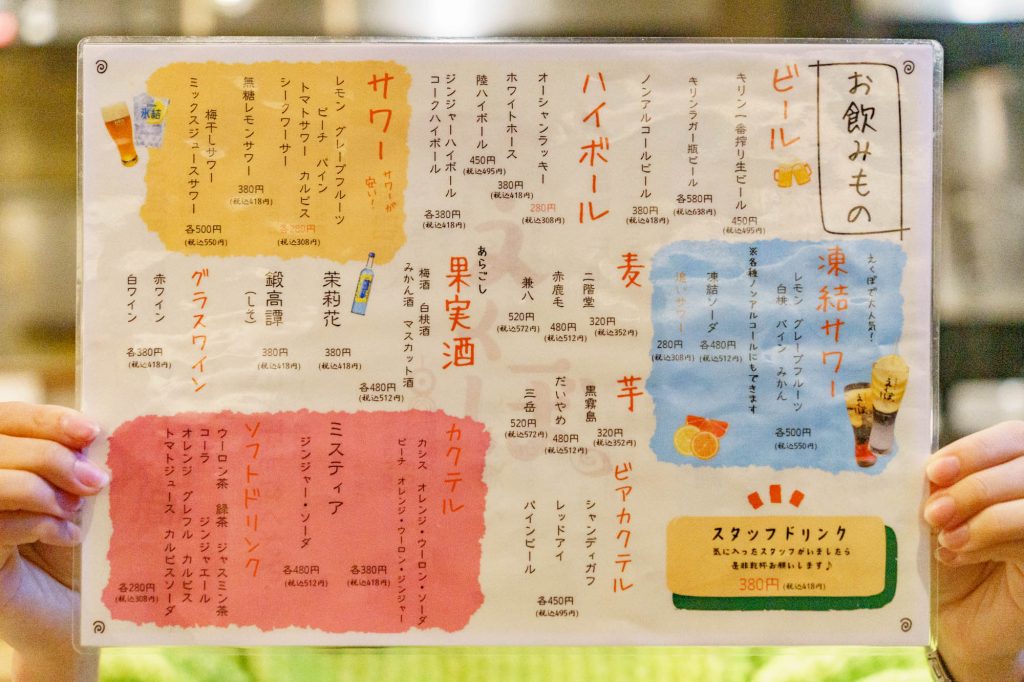 お飲みもの
ビール
キリン一番搾り生ビール
450円
(税込495円)
キリンラガー瓶ビール
各580円
(税込638円)
ノンアルコールビール
380円
(税込418円)
ハイボール
オーシャンラッキー
280円
(税込308円)
ホワイトホース
380円
(税込418円)
陸ハイボール
450円
(税込495円)
ジンジャーハイボール
コークハイボール
各380円
(税込418円)
サワー
サワーが
安い!
レモン グレープフルーツ
ピーチ パイン
トマトサワー カルピス
シークワーサー
各280円
(税込308円)
無糖レモンサワー
380円
(税込418円)
梅干しサワー
ミックスジュースサワー
各500円
(税込550円)
氷結
凍結サワー
えくぼで大人気!
レモン グレープフルーツ
白桃 パイン みかん
各500円
(税込550円)
※各種ノンアルコールにもできます
凍結ソーダ
各480円
(税込512円)
追いサワー
280円
(税込308円)
麦
二階堂
320円
(税込352円)
赤鹿毛
480円
(税込512円)
兼八
520円
(税込572円)
芋
黒霧島
320円
(税込352円)
だいやめ
480円
(税込512円)
三岳
520円
(税込572円)
あらごし
果実酒
梅酒 白桃酒
みかん酒 マスカット酒
各480円
(税込512円)
茉莉花
380円
(税込418円)
鍛高譚
(しそ)
380円
(税込418円)
グラスワイン
赤ワイン
白ワイン
各380円
(税込418円)
ビアカクテル
シャンディガフ
レッドアイ
パインビール
各450円
(税込495円)
カクテル
カシス オレンジ・ウーロン・ソーダ
ピーチ オレンジ・ウーロン・ジンジャー
各380円
(税込418円)
ミスティア
ジンジャー・ソーダ
各480円
(税込512円)
ソフトドリンク
ウーロン茶 緑茶 ジャスミン茶
コーラ ジンジャエール
オレンジ グレフル カルピス
トマトジュース カルピスソーダ
各280円
(税込308円)
スタッフドリンク
気に入ったスタッフがいましたら
是非乾杯お願いします♪
380円(税込418円)